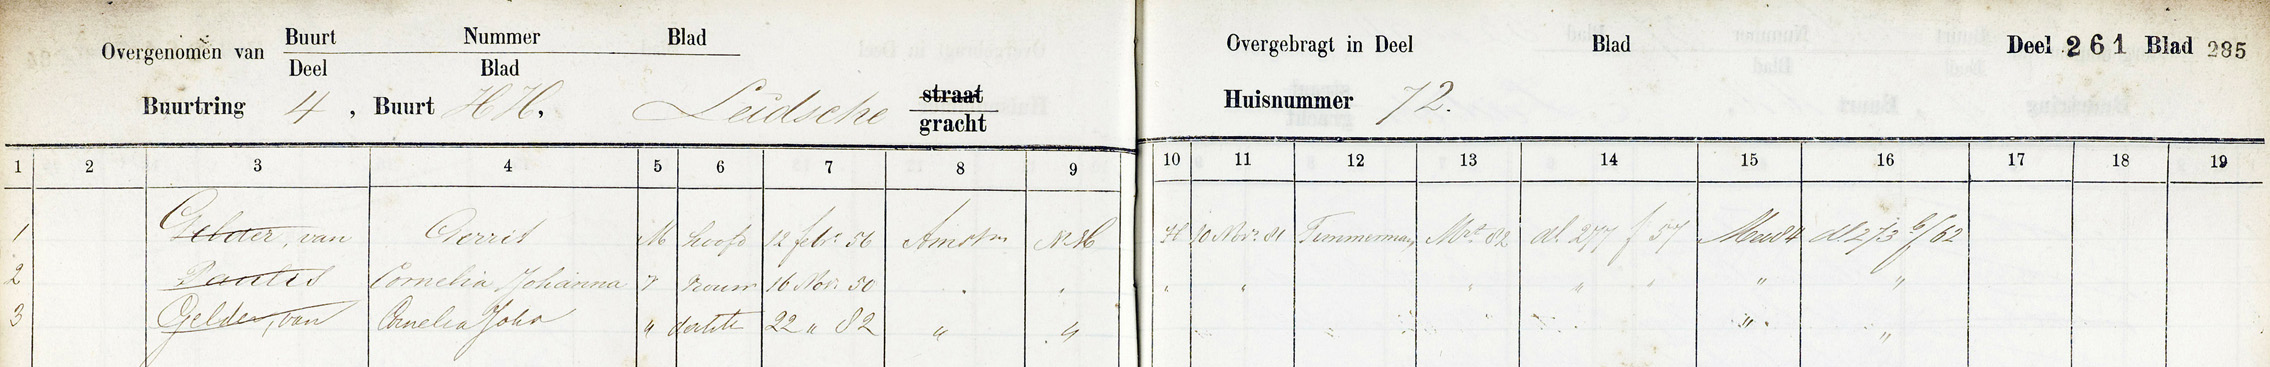 Overgenomen van Buurt Nummer Blad
Deel Blad
Overgebragt in Deel Blad Deel 261 Blad 285
Buurtring 4, Buurt HH. Leidsche straat
gracht
Huisnummer 72.
1 2 3 4 5 6 7 8 9 10 11 12 13 14 15 16 17 18 19
1 Gelder, van Gerrit M hoofd 12 febr. 56 Amstm N.H. H 10 Novr. 81 Timmerman Mrt 82 dl. 277 f 57 Mei 84 dl 273 f 62
2 Cornelia Johanna v vrouw 16 Nov. 50 " " " " " " " " "
3 Gelder, van Cornelia Joha " dochter 22 " 82 " " " " " " "